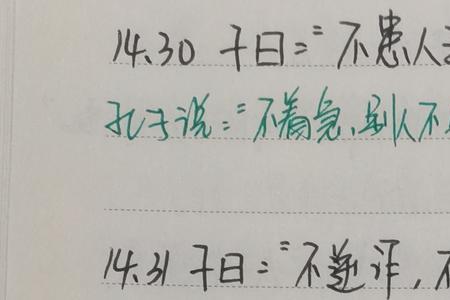 14.30 子曰:“不患人
孔子说:“不着急,别人不
14.31 子曰:“不逆诈,不